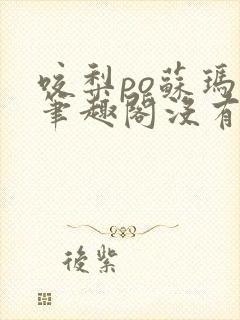 咬梨po蘇瑪
筆趣閣沒有
後紫